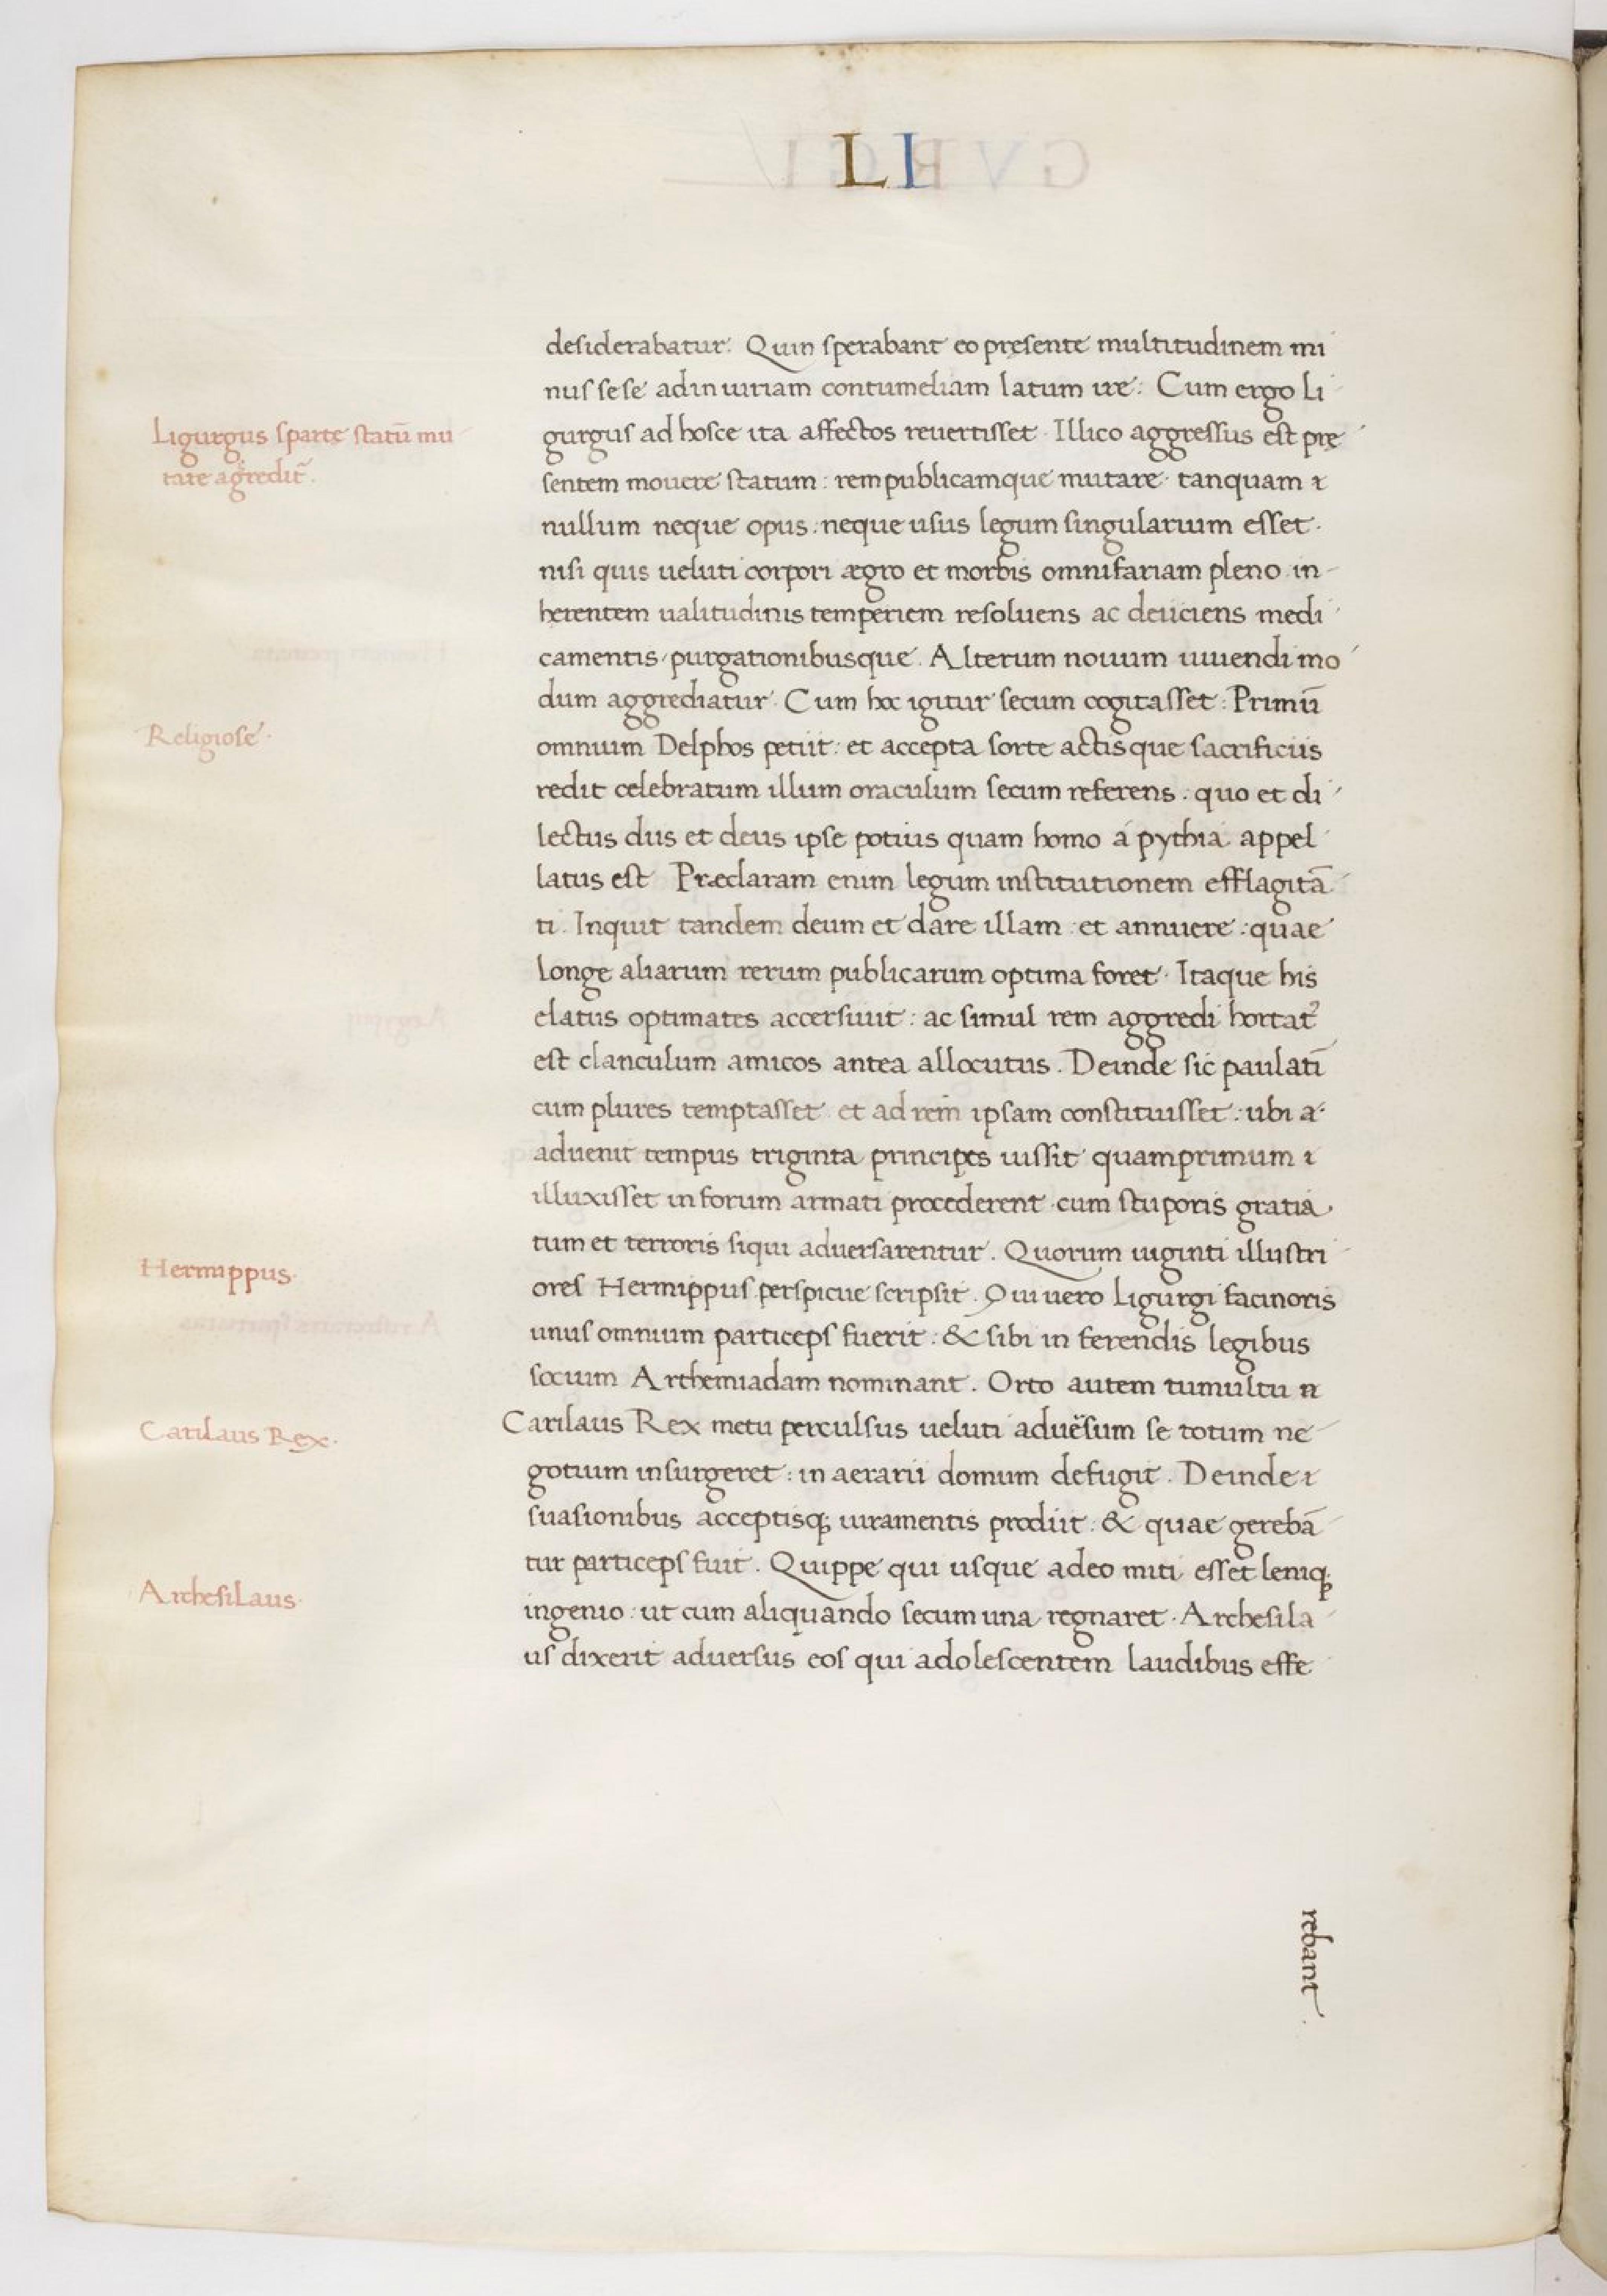 LI
desiderabatur. Quin sperabant eo pręsente multitudinem mi
nus sese ad iniuriam contumeliam latum ire. Cum ergo Li
gurgus ad hosce ita affectos reuertisset. Illico aggressus est prę
sentem mouere statum: rempublicamque mutare. tanquam
nullum neque opus: neque usus legum singularium esset.
nisi quis ueluti corpori ægro et morbis omnifariam pleno in
herentem ualitudinis temperiem resoluens ac deiiciens medi
camentis, purgationibusque. Alterum nouum uiuendi mo
dum aggrediatur. Cum hoc igitur secum cogitasset: Primū
omnium Delphos petiit: et accepta sorte actisque sacrificiis
redit celebratum illum oraculum secum referens. quo et di
lectus diis et deus ipse potius quam homo á pythia appel
latus est. Præclaram enim legum institutionem efflagitā
ti. Inquit tandem deum et dare illam: et annuere: quae
longe aliarum rerum publicarum optima foret. Itaque his
elatus optimates accersiuit: ac simul rem aggredi hortat᾽
est clanculum amicos antea allocutus. Deinde sic paulatī
cum plures temptasset et ad rem ipsam constituisset: ubi a
aduenit tempus triginta principes iussit quamprimum
illuxisset in forum armati procederent. cum stuporis gratia
tum et terroris siqui aduersarentur. Quorum uiginti illustri
ores Hermippus perspicue scripsit. Qui uero Ligurgi facinoris
unus omnium particeps fuerit: & sibi in ferendis legibus
socium Arthemiadam nominant. Orto autem tumultu
Carilaus Rex metu perculsus ueluti aduēsum se totum ne
gotium insurgeret: in aerarii domum defugit. Deinde
suasionibus acceptisq; iuramentis prodiit: & quae gerebā
tur particeps fuit. Quippe qui usque adeo miti esset leniq;
ingenio: ut cum aliquando secum una regnaret. Archesila
us dixerit aduersus eos qui adolescentem laudibus effe
rebant.
Ligurgus spartę statū mu
tare agredit̄.
Religiose.
Hermippus.
Carilaus Rex.
Archesilaus.